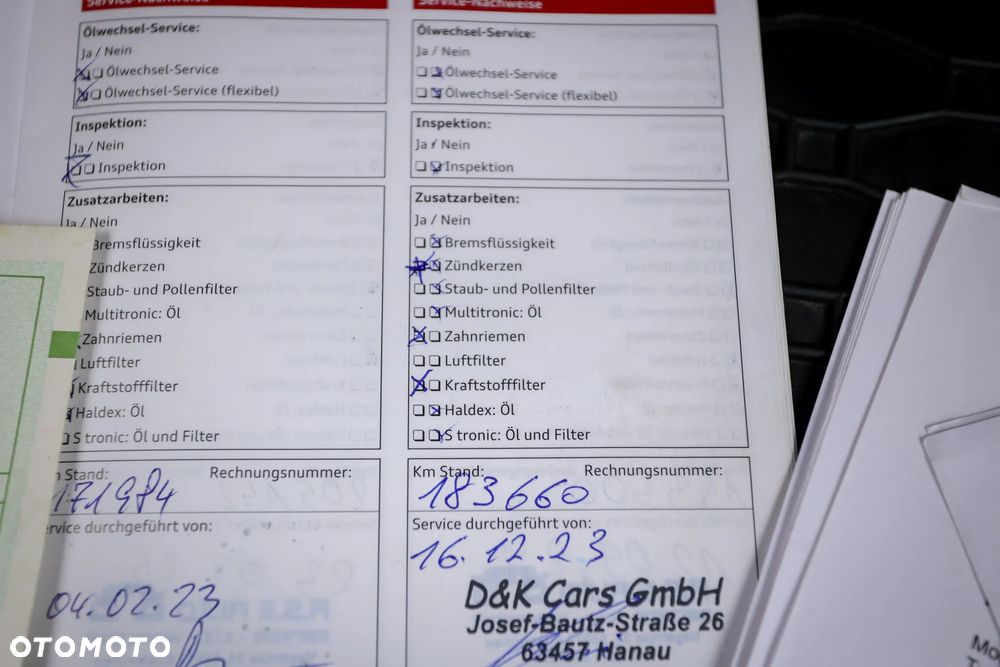 Service-Nachweise
Ölwechsel-Service:
Ja / Nein
Ölwechsel-Service
Ölwechsel-Service (flexibel)
Inspektion:
Ja / Nein
Inspektion
Zusatzarbeiten:
Ja / Nein
Bremsflüssigkeit
Zündkerzen
Staub- und Pollenfilter
Multitronic: Öl
Zahnriemen
Luftfilter
Kraftstofffilter
Haldex: Öl
S tronic: Öl und Filter
m Stand: Rechnungsnummer:
171984
ervice durchgeführt von:
04.02.23
Service-Nachweise
Ölwechsel-Service:
Ja / Nein
Ölwechsel-Service
Ölwechsel-Service (flexibel)
Inspektion:
Ja / Nein
Inspektion
Zusatzarbeiten:
Ja / Nein
Bremsflüssigkeit
Zündkerzen
Staub- und Pollenfilter
Multitronic: Öl
Zahnriemen
Luftfilter
Kraftstofffilter
Haldex: Öl
S tronic: Öl und Filter
Km Stand: Rechnungsnummer:
183660
Service durchgeführt von:
16.12.23
D&K Cars GmbH
Josef-Bautz-Straße 26
63457 Hanau
OTOMOTO